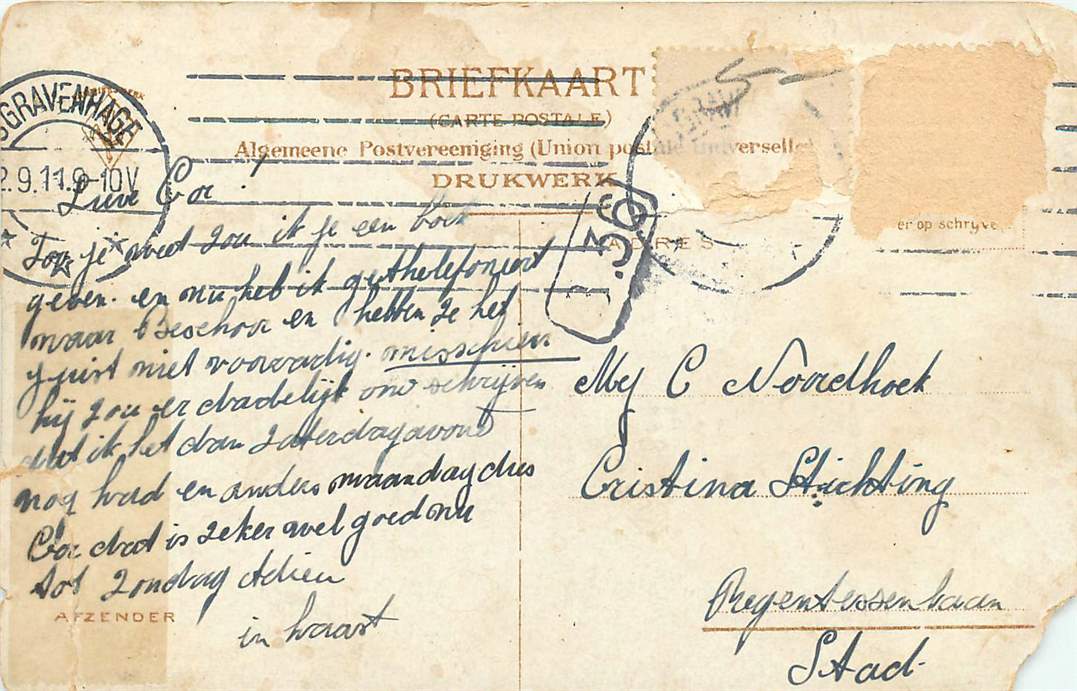 BRIEFKAART
(CARTE POSTALE)
Algemeene Postvereeniging (Union postale Universelle)
DRUKWERK
'SGRAVENHAGE
2.9.11.9-10V
36
ADRES
er op schrijve
Lieve Cor
je weet zou ik je een boek
geven. en nu heb ik gethelefoneert
maar Beschoor en hebben ze het
juist niet voorradig. misschien
hij zou er dadelijk om schrijven
dat ik het dan zaterdagavond
nog had en anders maandag dus
Cor dat is zeker wel goed nu
tot zondag Adieu
in haast
AFZENDER
Mej C Noordhoek
Cristina Stichting
Regentessenlaan
Stad